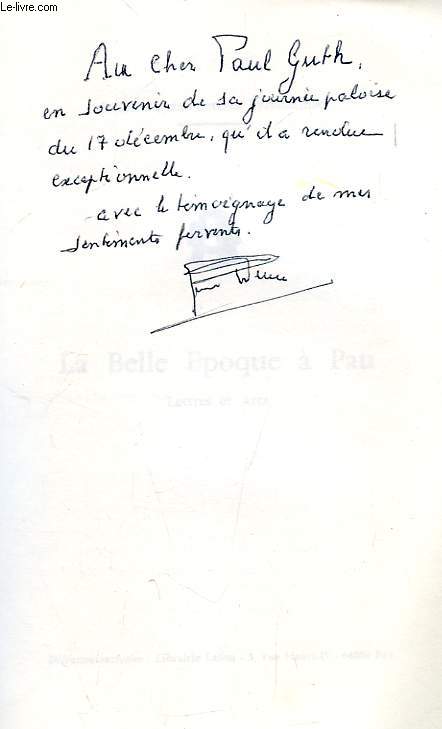 Le-livre.com
Au Cher Paul Guth,
en souvenir de sa journée paloise
du 17 décembre, qu'il a rendue
exceptionnelle.
avec le témoignage de mes
sentiments fervents.
La Belle Epoque à Pau
Lettres et Arts